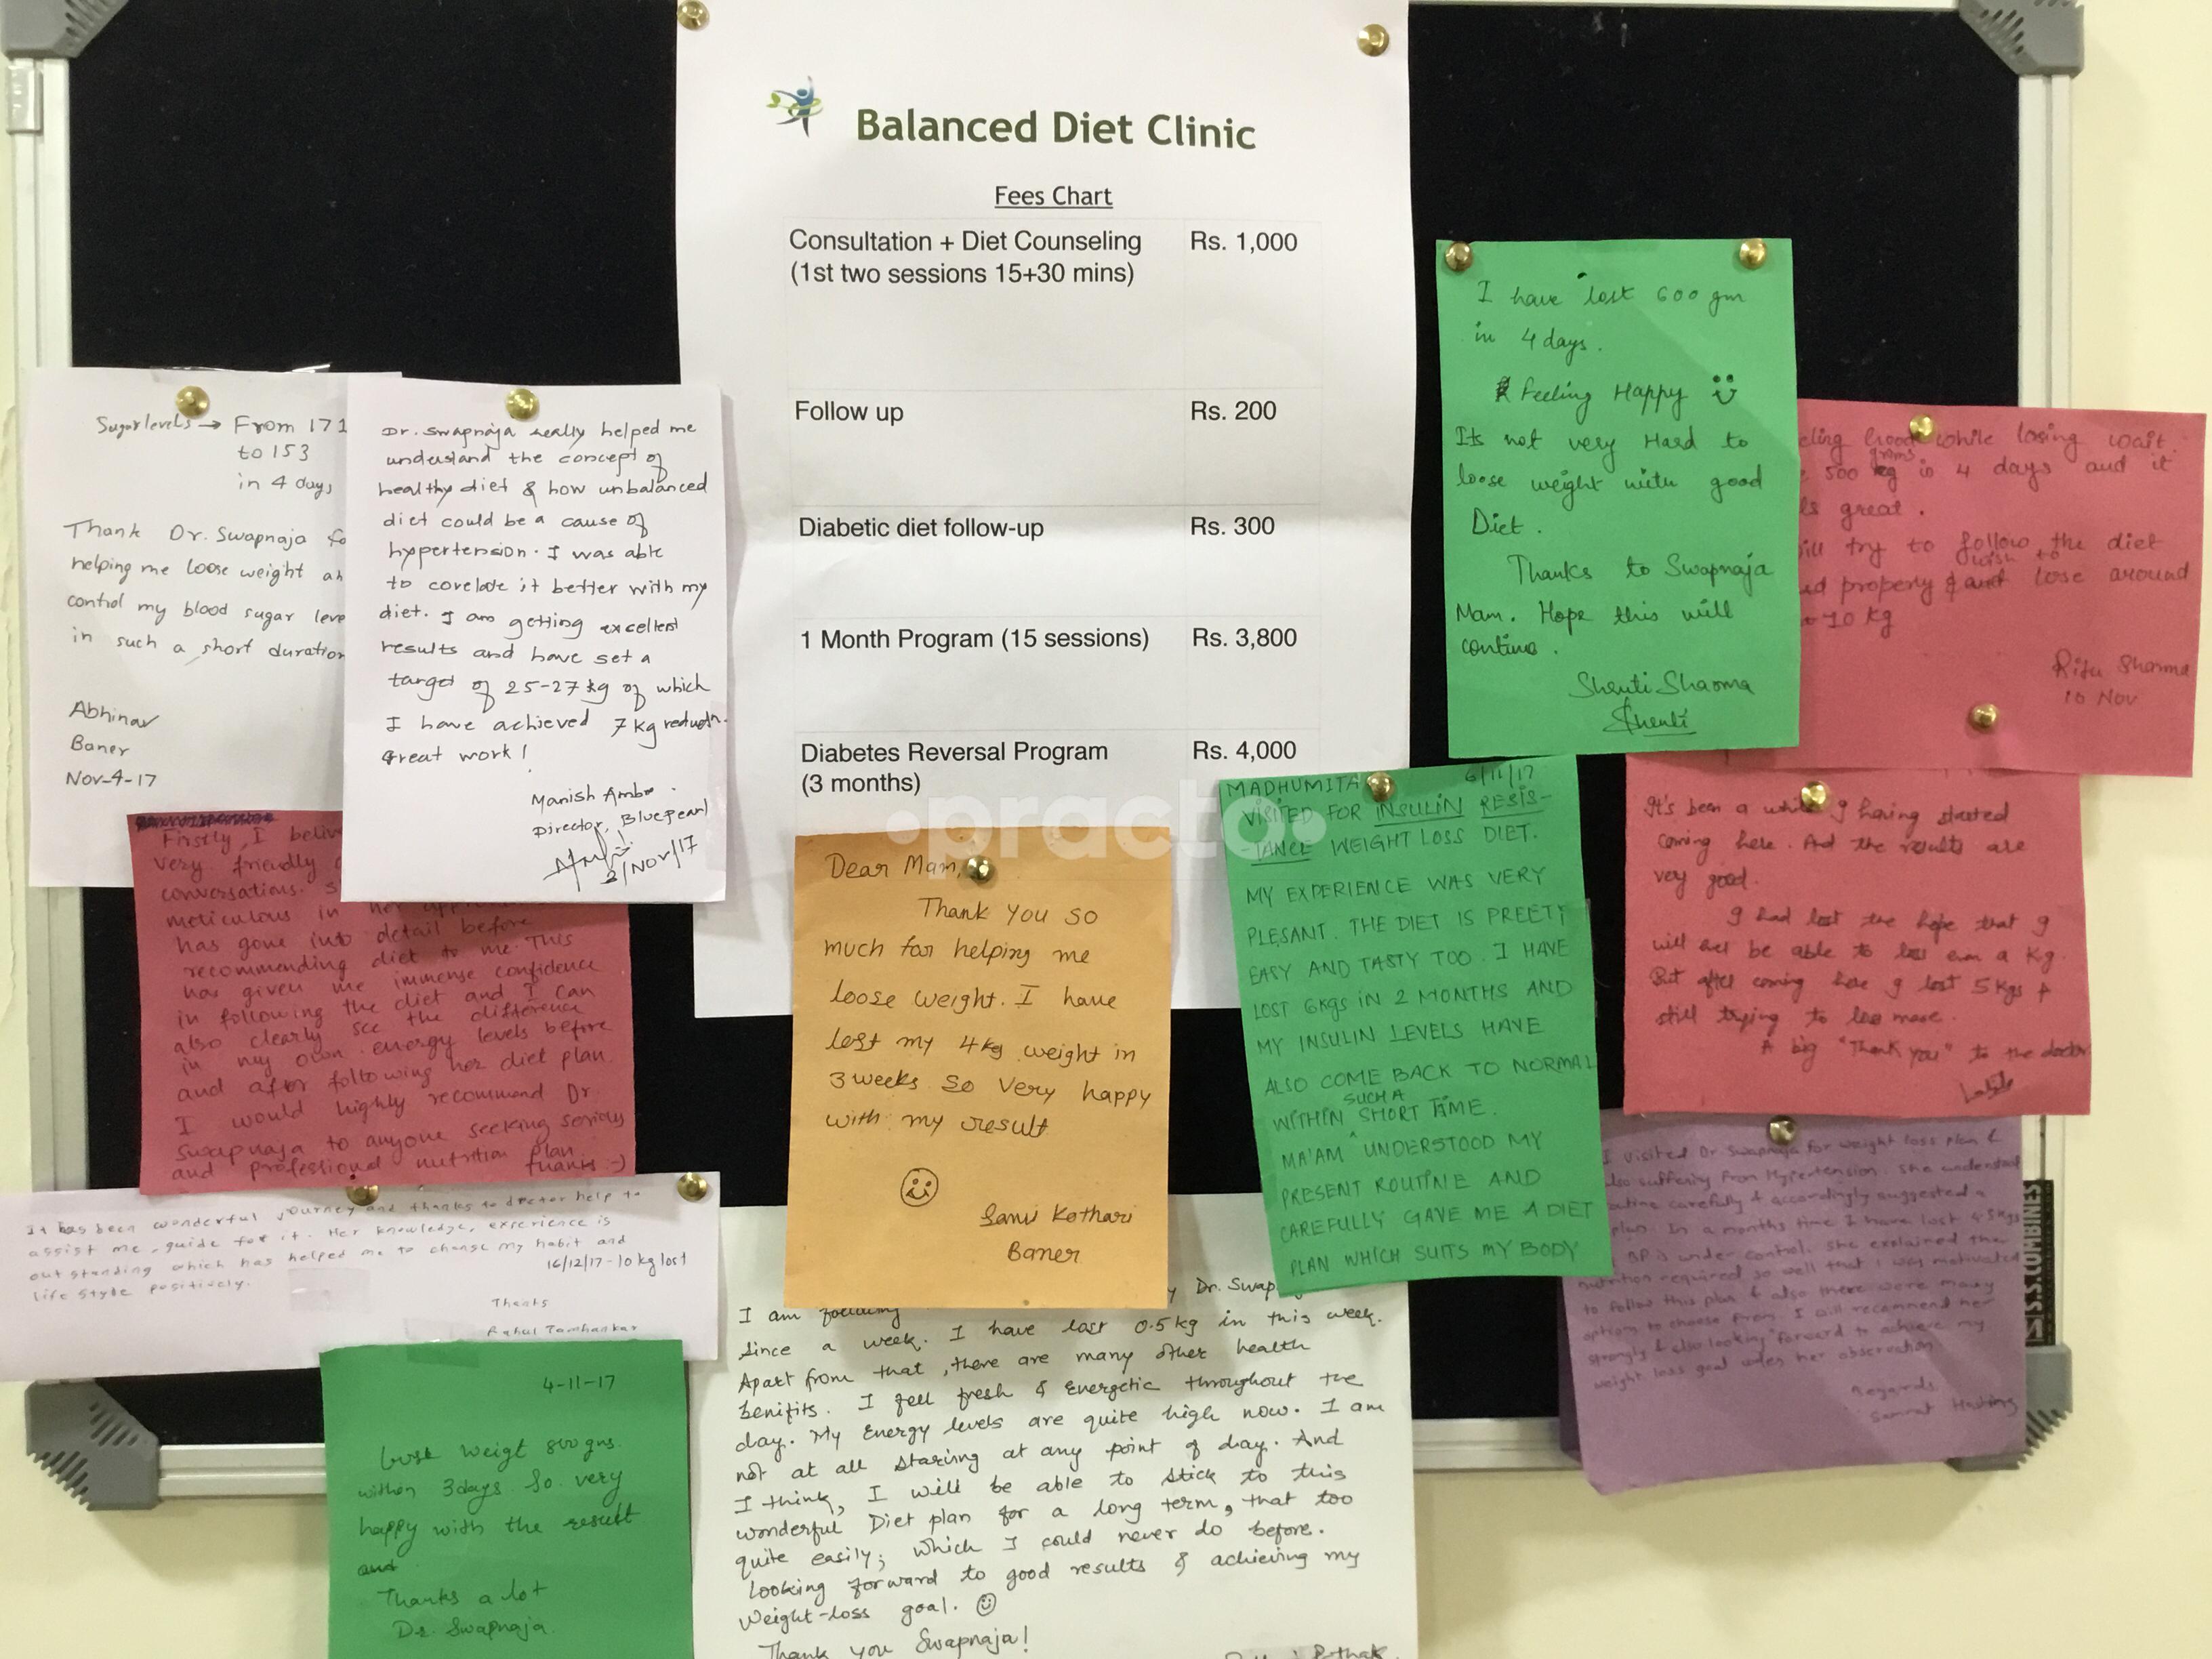 Balanced Diet Clinic
Fees Chart
Consultation + Diet Counseling Rs. 1,000
(1st two sessions 15+30 mins)
Follow up Rs. 200
Diabetic diet follow-up Rs. 300
1 Month Program (15 sessions) Rs. 3,800
Diabetes Reversal Program Rs. 4,000
(3 months)
practo
Sugar levels → From 171
to 153
in 4 days
Thank Dr. Swapnaja fo
helping me loose weight an
control my blood sugar leve
in such a short duration
Abhinav
Baner
Nov-4-17
Dr. Swapnaja really helped me
understand the concept of
healthy diet & how unbalanced
diet could be a cause of
hypertension. I was able
to corelate it better with my
diet. I am getting excellent
results and have set a
target of 25-27 kg of which
I have achieved 7 kg
Great work!
Manish Ambre.
Director, Bluepearl
2/Nov/17
Firstly, I beliv
very friendly
conversations. S
meticulous in her
has gone into detail before
recommending diet to me. This
has given me immense confidence
in following the diet and I can
also clearly see the difference
in my own energy levels before
and after following her diet plan.
I would highly recommend Dr.
Swapnaja to anyone seeking serious
and professional nutrition plan
Thanks :-)
It has been wonderful journey and thanks to doctor help to
assist me, guide for it. Her knowledge, experience is
outstanding which has helped me to change my habit and
life style positively.
16/12/17 - 10 kg lost
Thanks
Rahul Tamhankar
4-11-17
Lost weigt 800 gms.
within 3 days So very
happy with the result
and
Thanks a lot
Dr. Swapnaja.
Dear Mam,
Thank you so
much for helping me
loose weight. I have
lost my 4kg weight in
3 weeks so very happy
with my result
Kothari
Baner
Dr. Swap
I am following
since a week. I have lost 0.5 kg in this week.
Apart from that, there are many other health
benifits. I feel fresh & Energetic throughout the
day. My Energy levels are quite high now. I am
not at all starving at any point of day. And
I think, I will be able to stick to this
wonderful Diet plan for a long term, that too
quite easily; which I could never do before.
Looking forward to good results & achieving my
Weight-loss goal.
Thank you Swapnaja!
I have lost 600 gm
in 4 days.
Feeling Happy
Its not very Hard to
loose weight with good
Diet.
Thanks to Swapnaja
Mam. Hope this will
continue.
Shruti Sharma
Shruti
eling Good while losing wait.
500 grms in 4 days and it
ls great.
ill try to follow the diet
ed properly & wish to lose around
10 kg
Ritu Sharma
10 Nov
MADHUMITA 6/11/17
VISITED FOR INSULIN RESIS-
TANCE WEIGHT LOSS DIET.
MY EXPERIENCE WAS VERY
PLESANT. THE DIET IS PREETY
EASY AND TASTY TOO. I HAVE
LOST 6KGS IN 2 MONTHS AND
MY INSULIN LEVELS HAVE
ALSO COME BACK TO NORMAL
WITHIN SUCH A SHORT TIME.
MA'AM UNDERSTOOD MY
PRESENT ROUTINE AND
CAREFULLY GAVE ME A DIET
PLAN WHICH SUITS MY BODY
It's been a while I having started
coming here. And the results are
very good.
I had lost the hope that I
will ever be able to loss even a Kg.
But after coming here I lost 5 Kgs &
still trying to loss more.
A big "Thank you" to the doctor
I visited Dr Swapnaja for weight loss plan &
also suffering from Hypertension. She understood
routine carefully & accordingly suggested a
plan. In a months time I have lost 4.5kgs
BP is under control. She explained the
nutrition required so well that I was motivated
to follow this plan & also there were many
options to choose from. I will recommend her
strongly & also looking forward to achieve my
weight loss goal under her observation
Regards
S.S.COMBINES